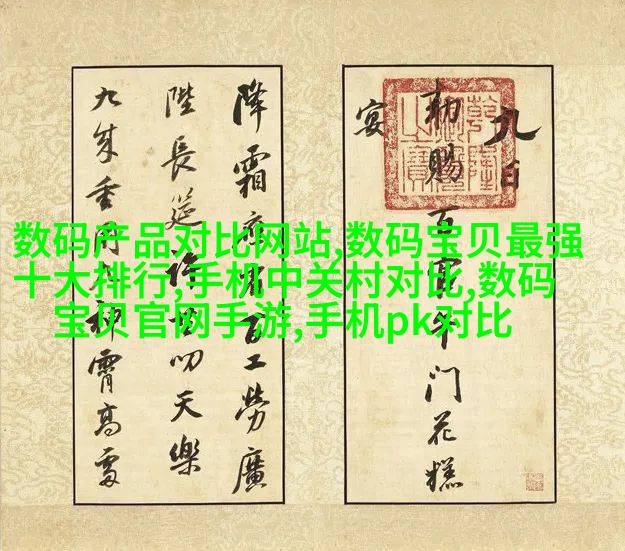 数码产品对比网站,数码宝贝最强
十大排行,手机中关村对比,数码
宝贝官网手游,手机pk对比
九日
敕賜百官午門花糕
宴
降霜省百工勞廣
陛長筵叨天樂
九重神霄高